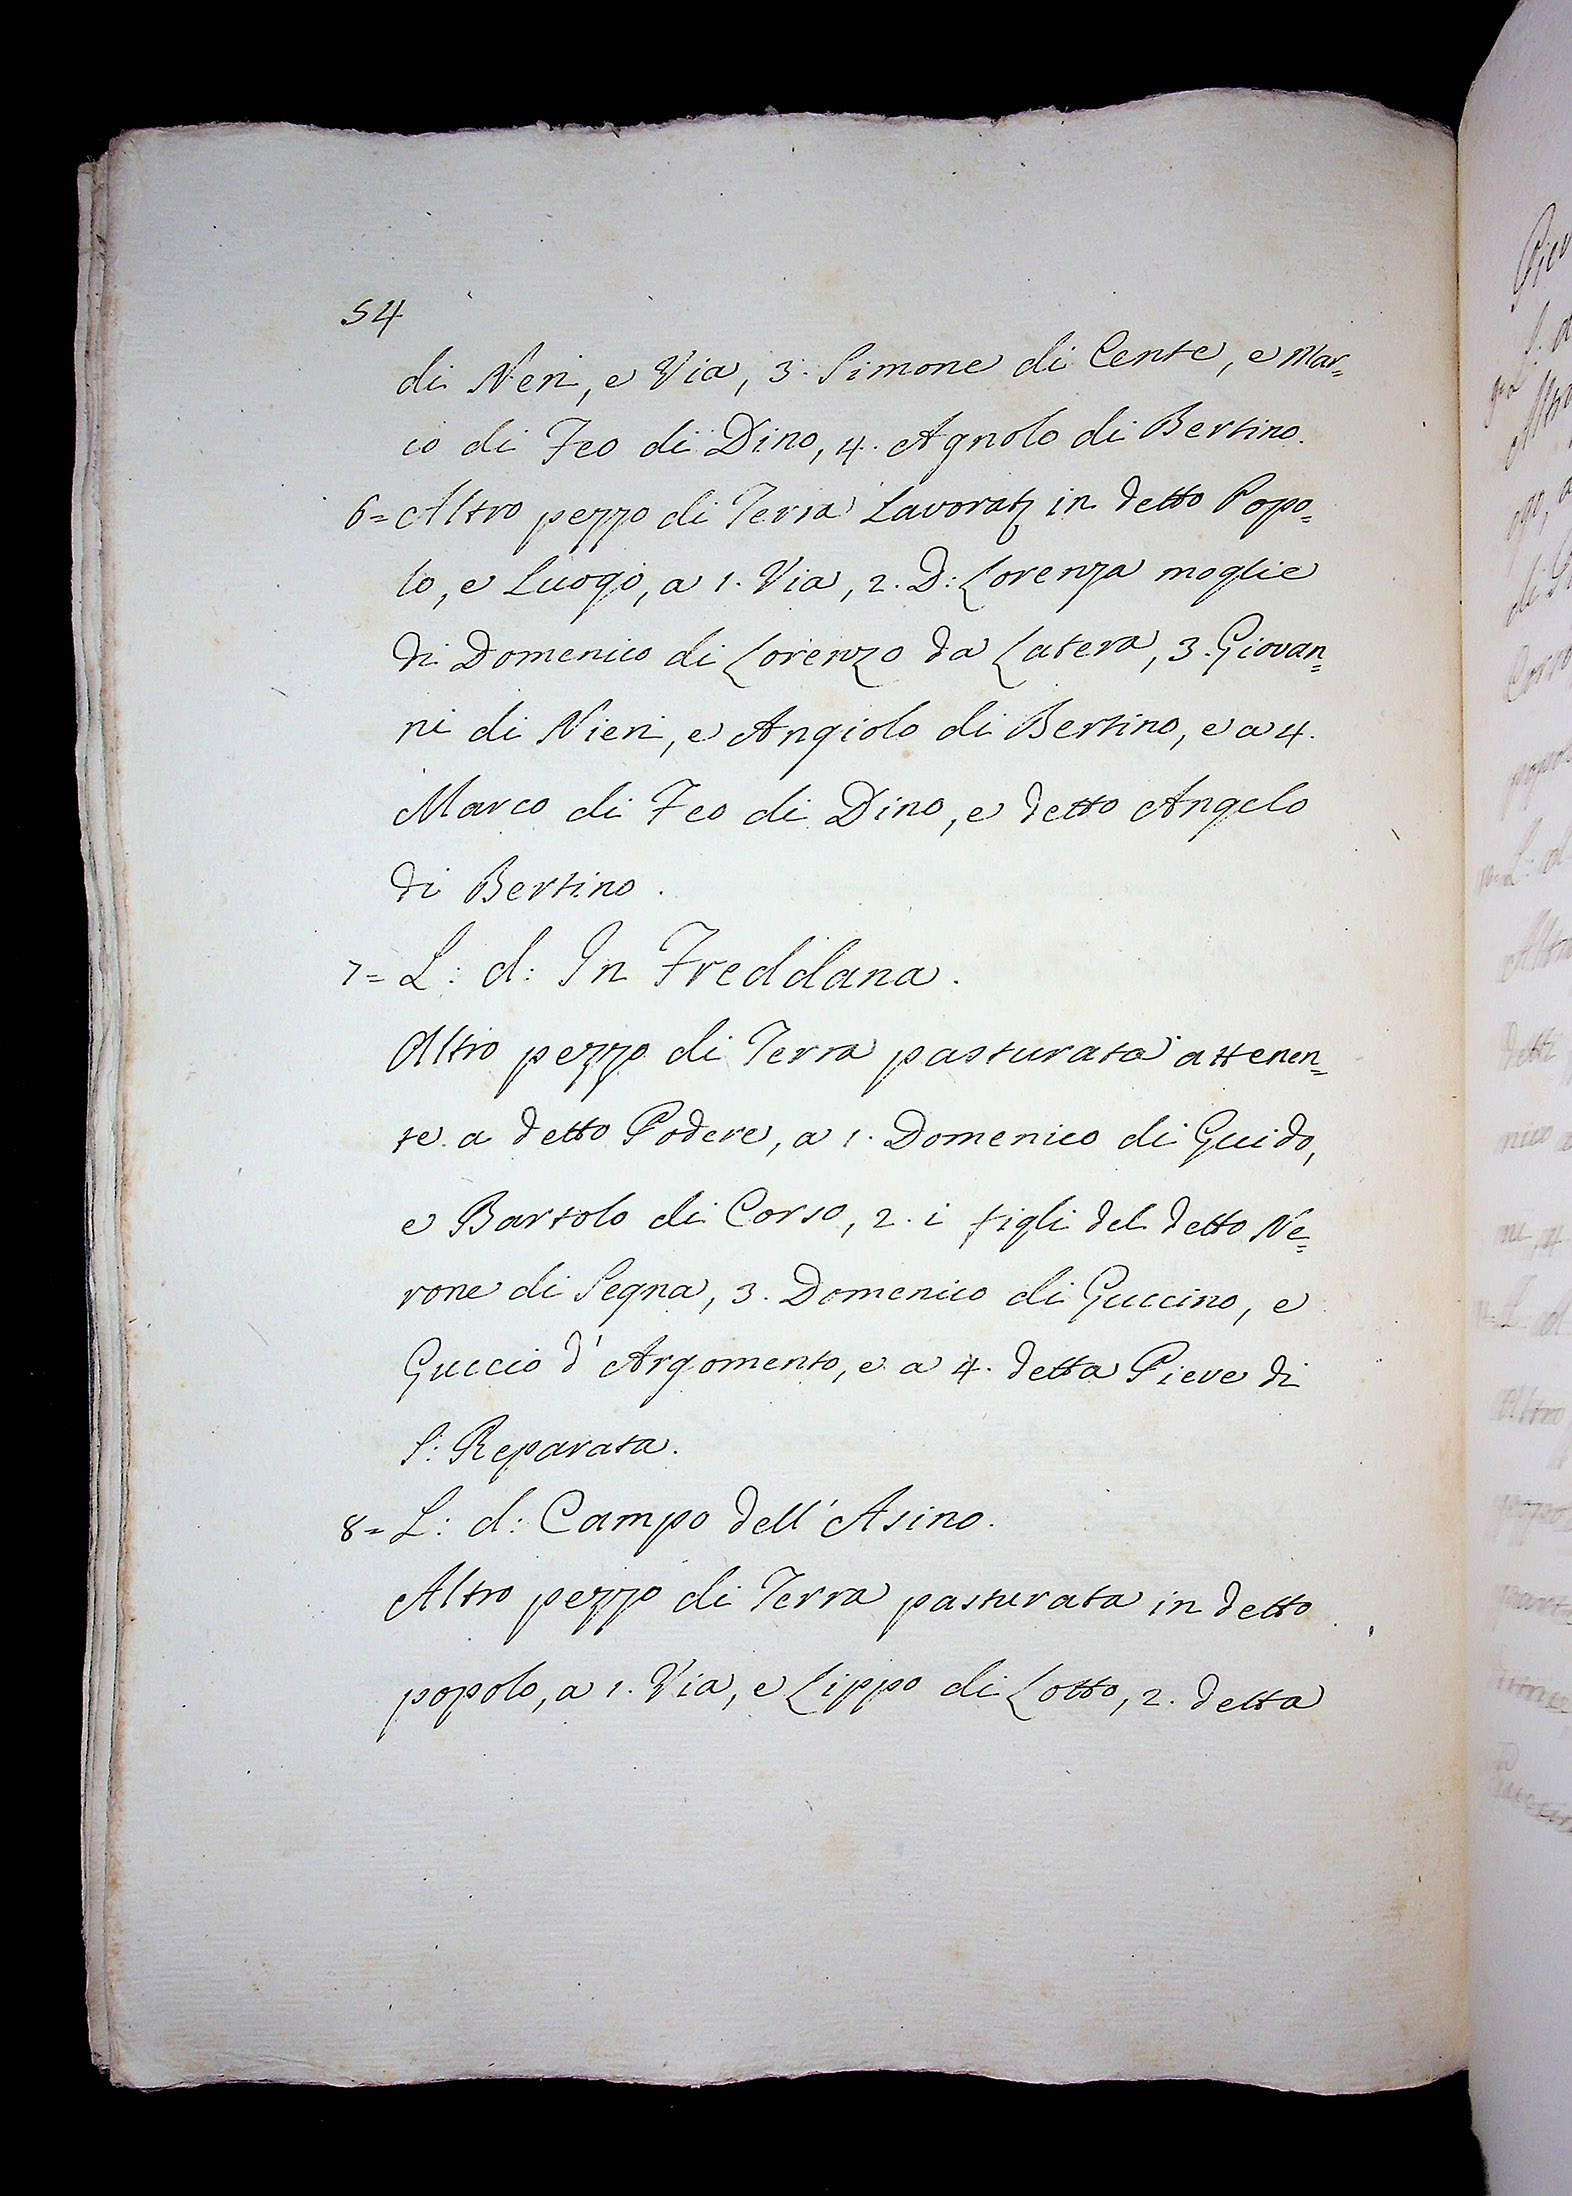 54
di Neri, e Via, 3. Simone di Cente, e Mar=
co di Feo di Dino, 4. Agnolo di Bertino.
6= Altro pezzo di Terra Lavorat. in detto Popo=
lo, e Luogo, a 1. Via, 2. D: Lorenza moglie
di Domenico di Lorenzo da Latera, 3. Giovan=
ni di Nieri, e Angiolo di Bertino, e a 4.
Marco di Feo di Dino, e detto Angelo
di Bertino.
7= L: d: In Freddana.
Altro pezzo di Terra pasturata attenen=
te a detto Podere, a 1. Domenico di Guido,
e Bartolo di Corso, 2. i figli del detto Ne=
rone di Segna, 3. Domenico di Guccino, e
Guccio d'Argomento, e a 4. detta Pieve di
S: Reparata.
8= L: d: Campo dell'Asino.
Altro pezzo di Terra pasturata in detto
popolo, a 1. Via, e Lippo di Lotto, 2. detta